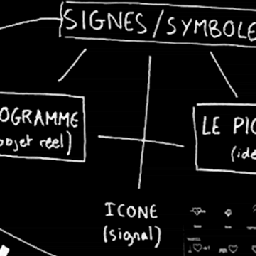 SIGNES/SYMBOLE
OGRAMME
objet réel)
LE PIC
(idé
ICONE
(signal)